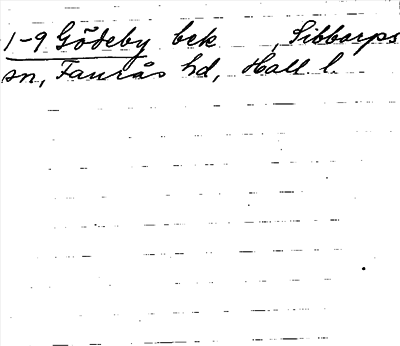 1-9 Gödeby bck , Sibbarps
sn, Faurås hd, Hall l.